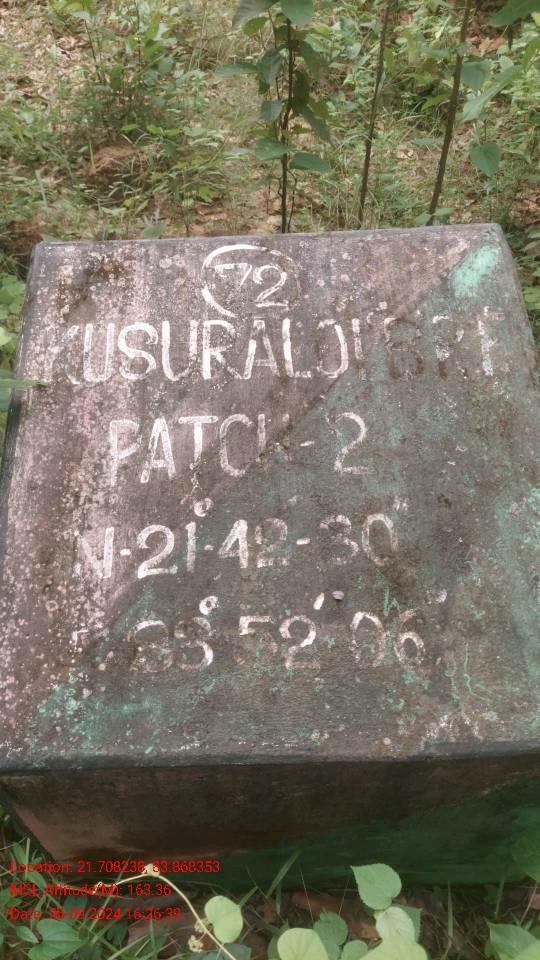 72
KUSURALOI PRF
PATCH-2
N-21°-42'-30"
83° 52' 06"
Location: 21.708238, 83.868353
MSL Altitude(M): 163.36
Date: 06-09-2024 16:26:39